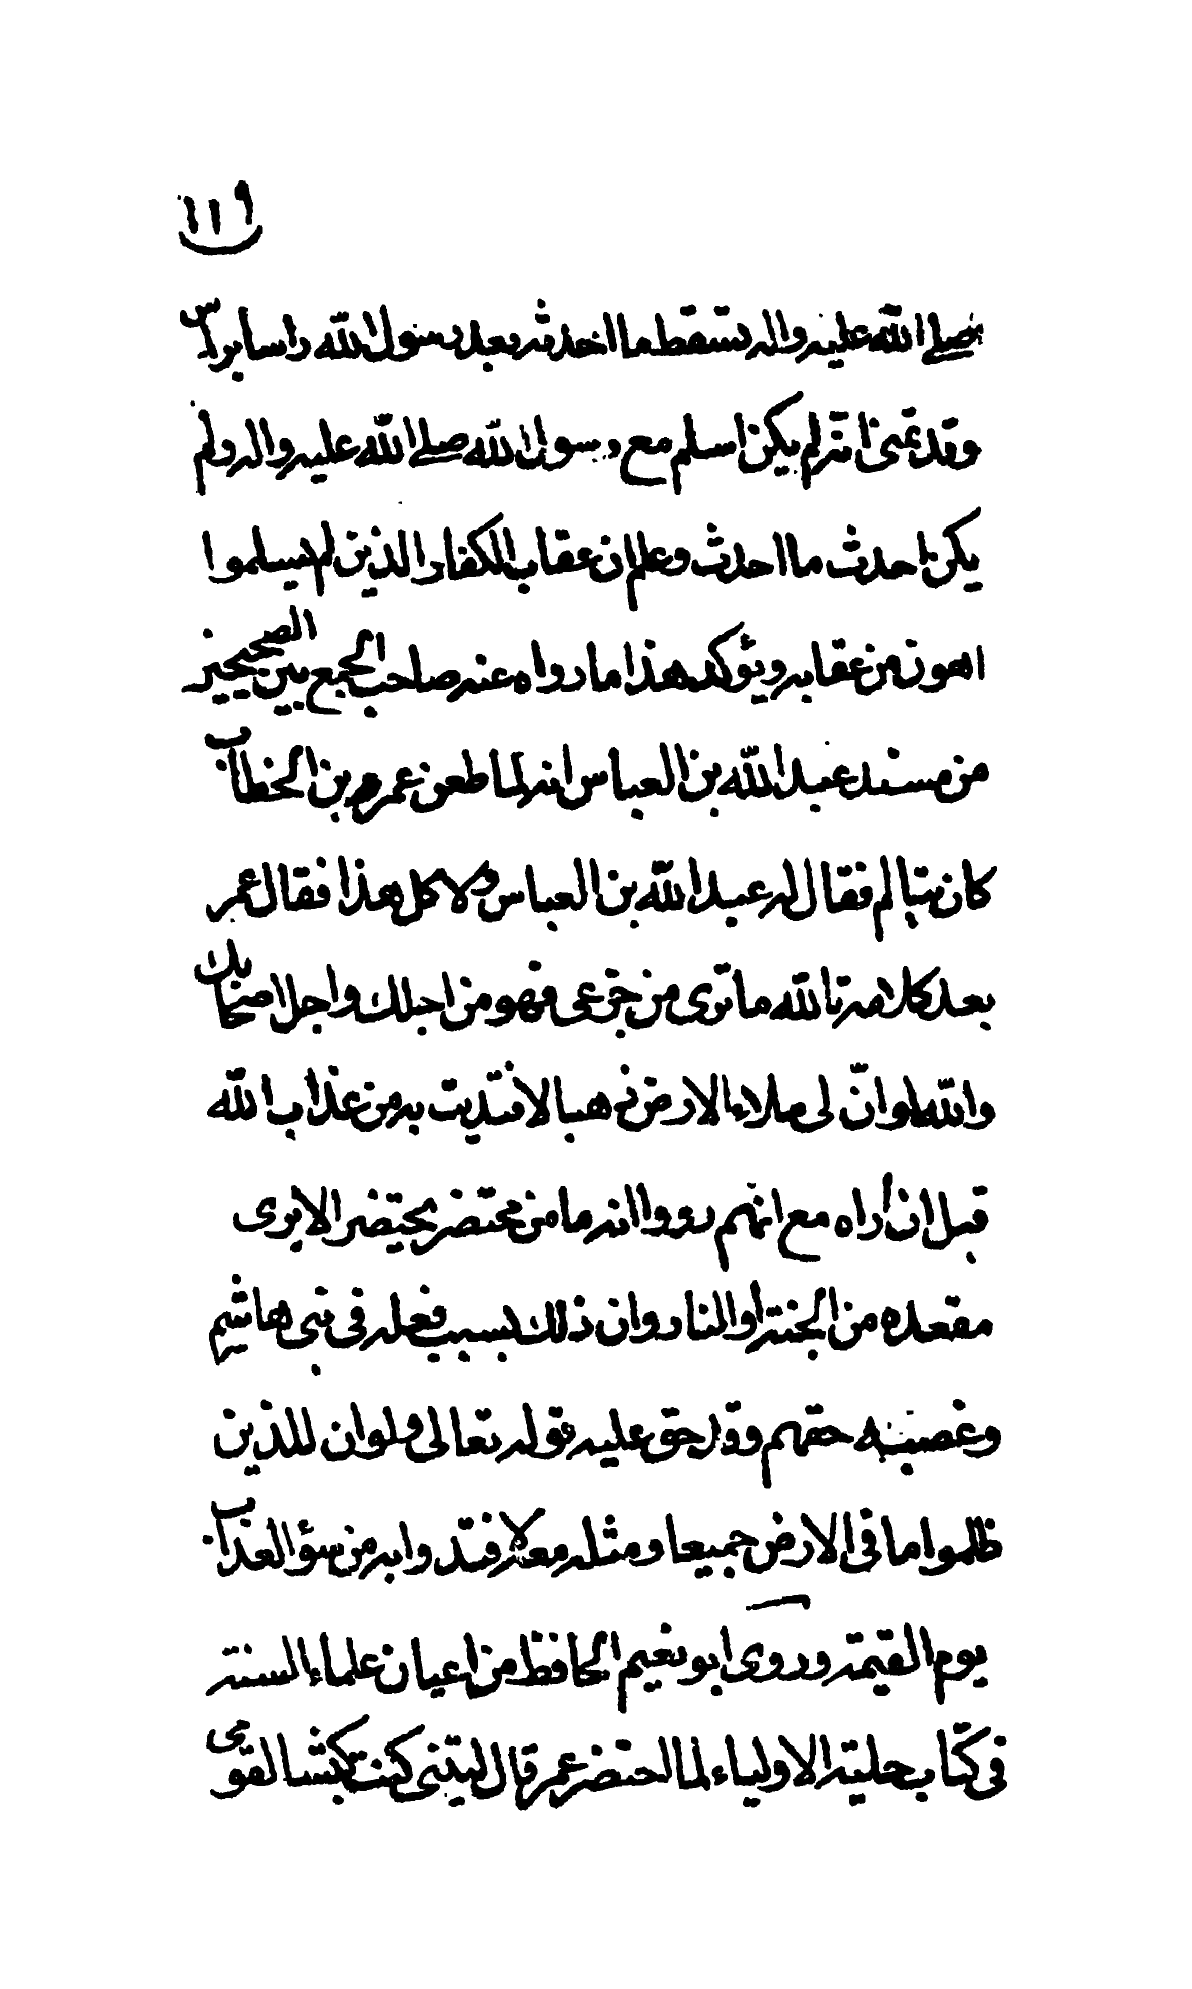 ١١٩
صلى الله عليه واله تسقط ما احدثه بعد رسول الله راسا براس
وقد تمنى انه لم يكن اسلم مع رسول الله صلى الله عليه واله ولم
يكن احدث ما احدث وعلم ان عقاب الكفار الذين لم يسلموا
اهون من عقابه ويؤكد هذا ما رواه عنه صاحب الجمع بين الصحيحين
من مسند عبد الله بن العباس انه لما طعن عمر بن الخطاب
كان يتالم فقال له عبد الله بن العباس ولا كل هذا فقال عمر
بعد كلامه تالله ما ترى من جزعي فهو من اجلك واجل اصحابك
والله لو انّ لى ملاء الارض ذهبا لافتديت به من عذاب الله
قبل ان أراه مع انهم رووا انه ما من محتضر يحتضر الا يرى
مقعده من الجنة أو النار وان ذلك بسبب فعله في بنى هاشم
وغصبه حقهم وقد حق عليه قوله تعالى ولو ان للذين
ظلموا ما في الارض جميعا ومثله معه لافتدوا به من سؤ العذاب
يوم القيمة وروى ابو نعيم الحافظ من اعيان علماء السنة
في كتاب حلية الاولياء لما احتضر عمر قال ليتني كنت كبشا لقومى